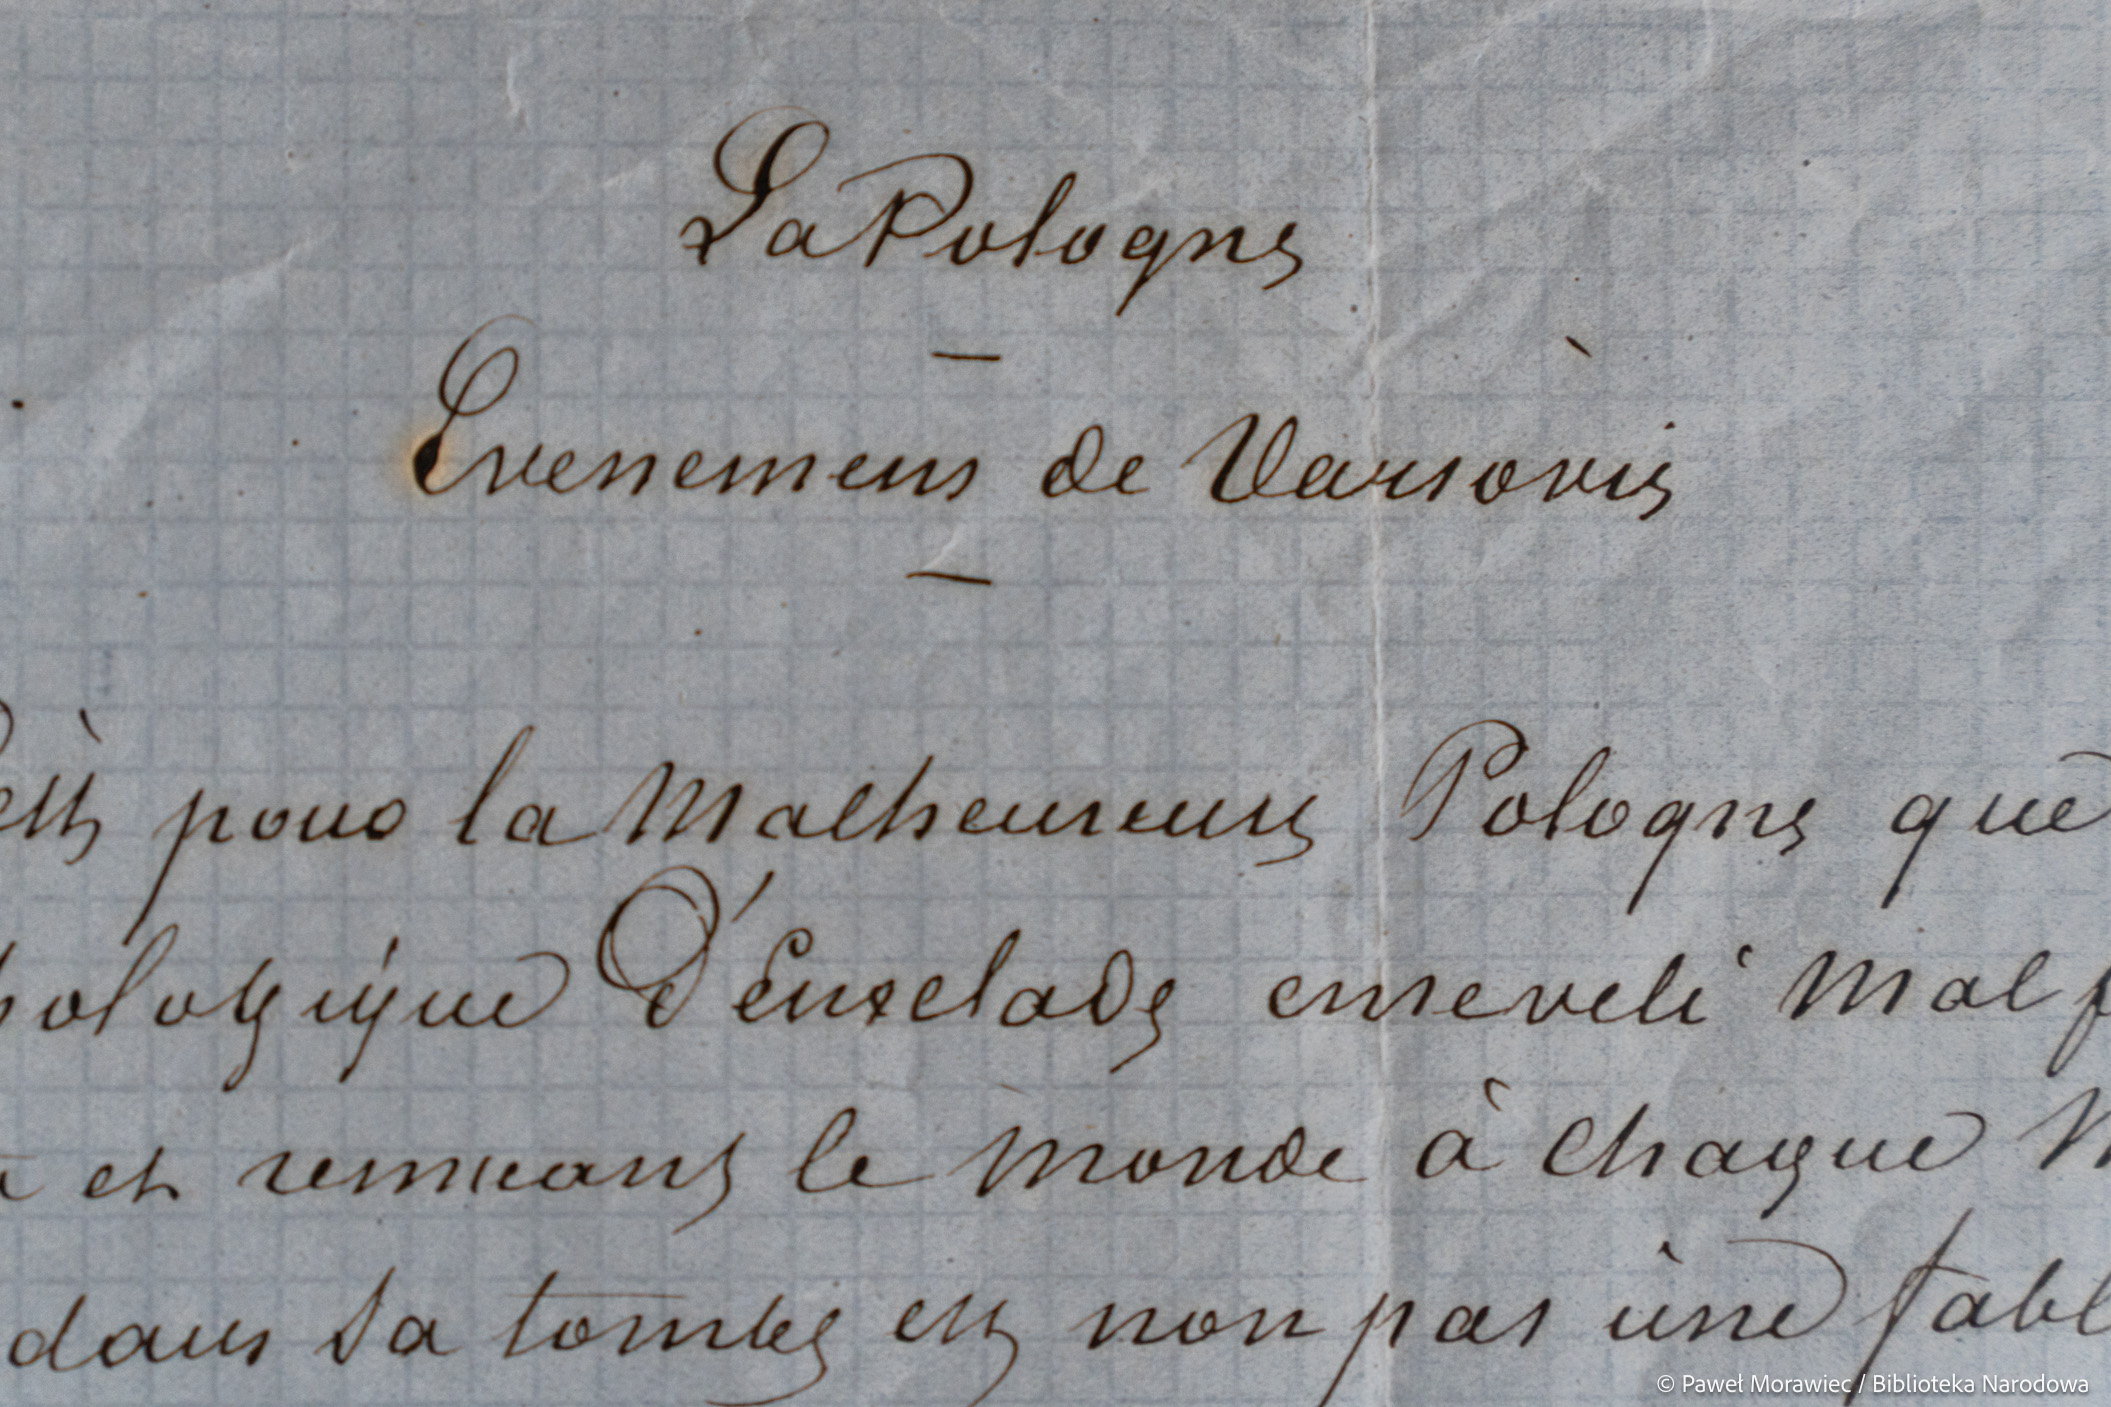 La Pologne
Evenemens de Varsòvie
pour la Malheureuse Pologne que
D'Enxelade enseveli mal
et remuant le monde à chaque
dans sa tombe est non pas une
© Paweł Morawiec / Biblioteka Narodowa